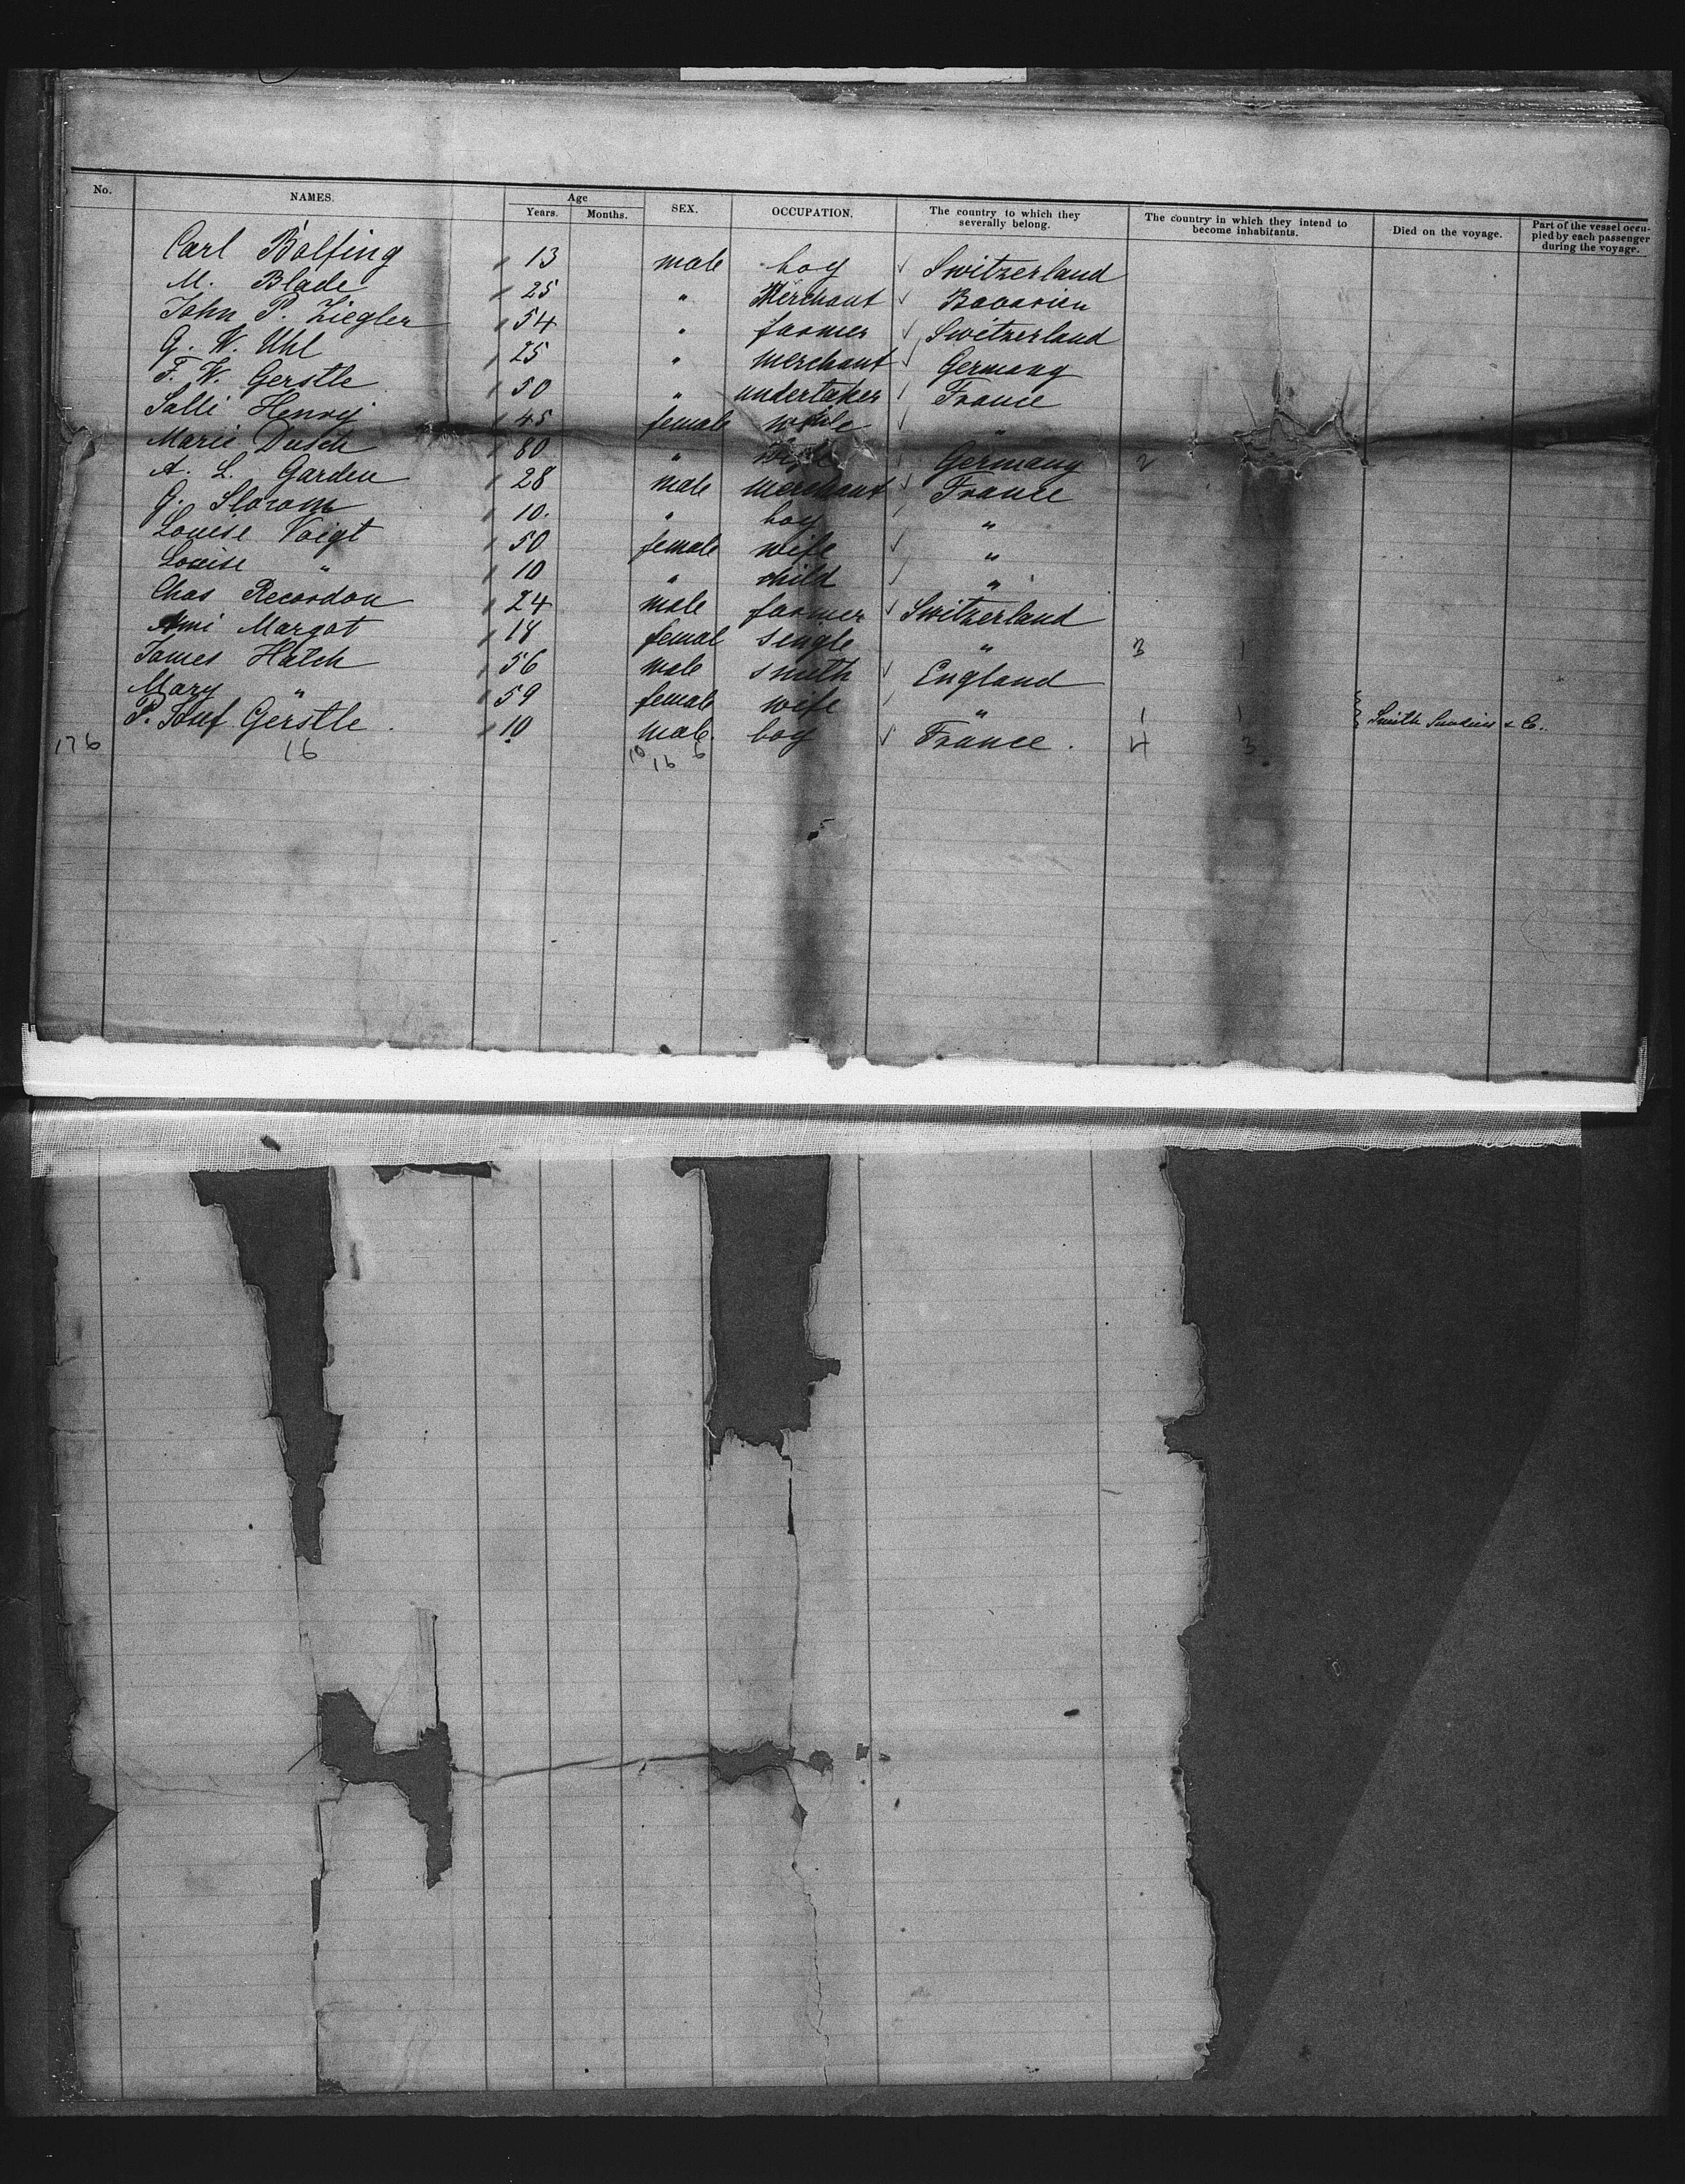 No. NAMES. Age Years. Months. SEX. OCCUPATION. The country to which they severally belong. The country in which they intend to become inhabitants. Died on the voyage. Part of the vessel occupied by each passenger during the voyage.
Carl Bolfing 13 male boy Switzerland
M. Blade 25 " Merchant Bavarien
John P. Ziegler 54 " farmer Switzerland
G. W. Uhl 25 " merchant Germany
F. W. Gerstle 50 " undertaker France
Salli Henry 45 female "
Marie Dusch 80 " Germany 2
A. L. Garden 28 male merchant France
G. 10. " boy "
Louise Voigt 50 female wife "
Louise " 10 " child "
Chas Recordon 24 male farmer Switzerland
Ami Margot 18 femal single " 3 1
James Hatch 56 male smith England
Mary " 59 female wife " 1 1 Smith & Co.
P. Josef Gerstle. 10 male. boy France. 4 3
176 16 10 16 6